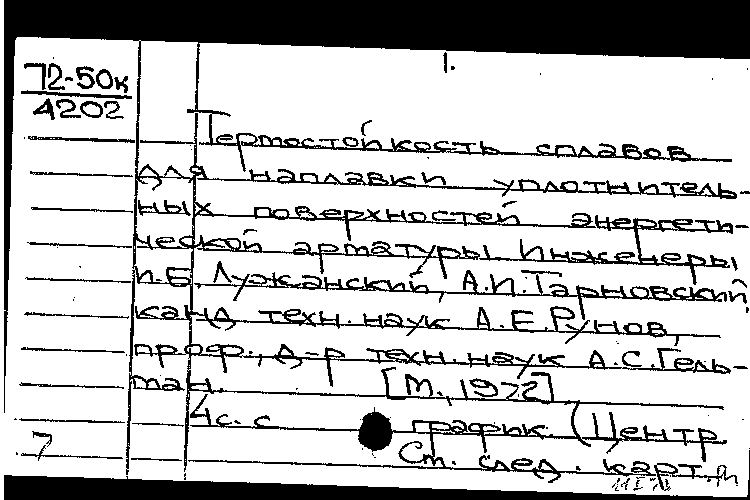 1.
72-50к
4202
Термостойкость сплавов
для наплавки уплотнитель-
ных поверхностей энергети-
ческой арматуры. Инженеры
И.Б. Лужанский, А.И. Тарновский,
канд техн. наук А.Е. Рунов,
проф., д-р техн. наук А.С. Гель-
ман. [М., 1972]
4с. с график. (Центр.
7 См. след. карт.